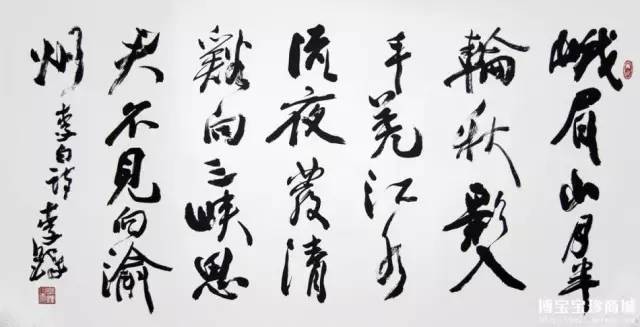 峨眉山月半
輪秋影入
平羌江水
流夜發清
谿向三峽思
君不見向渝
州
李白詩 李鐸
博宝宝珍商城